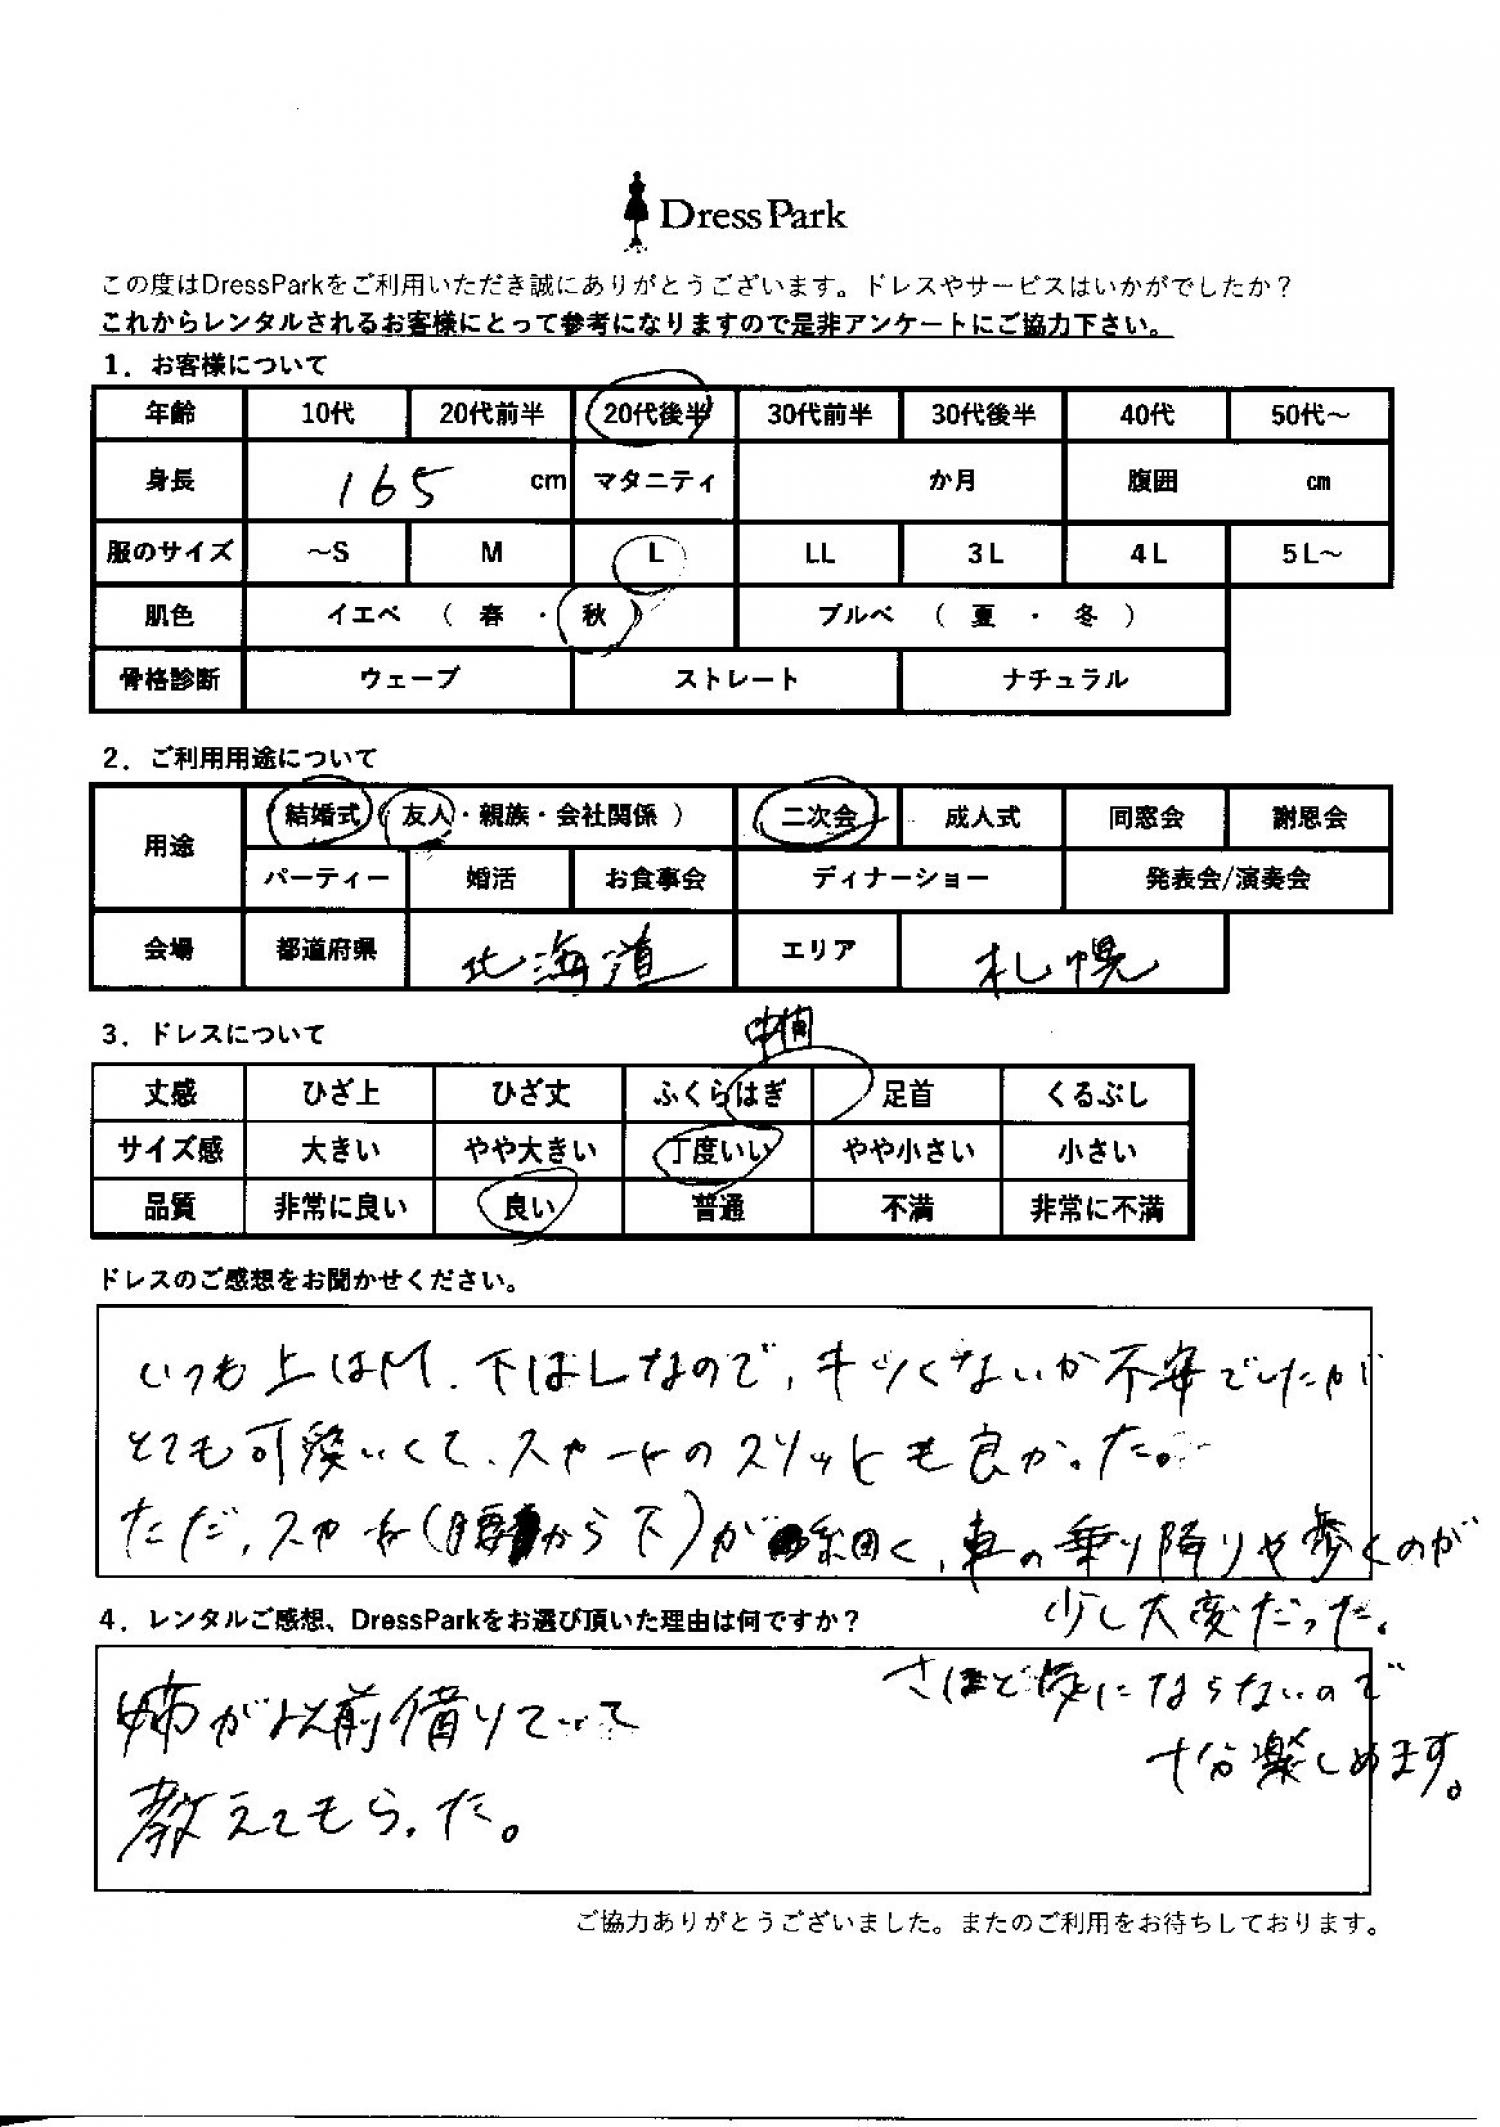 Dress Park
この度はDressParkをご利用いただき誠にありがとうございます。ドレスやサービスはいかがでしたか？
これからレンタルされるお客様にとって参考になりますので是非アンケートにご協力下さい。
1．お客様について
年齢 10代 20代前半 20代後半 30代前半 30代後半 40代 50代～
身長 165 cm マタニティ か月 腹囲 cm
服のサイズ ～S M L LL 3L 4L 5L～
肌色 イエベ （ 春 ・ 秋 ） ブルベ （ 夏 ・ 冬 ）
骨格診断 ウェーブ ストレート ナチュラル
2．ご利用用途について
用途 結婚式（友人・親族・会社関係 ） 二次会 成人式 同窓会 謝恩会
パーティー 婚活 お食事会 ディナーショー 発表会/演奏会
会場 都道府県 北海道 エリア 札幌
3．ドレスについて
中間
丈感 ひざ上 ひざ丈 ふくらはぎ 足首 くるぶし
サイズ感 大きい やや大きい 丁度いい やや小さい 小さい
品質 非常に良い 良い 普通 不満 非常に不満
ドレスのご感想をお聞かせください。
いつも上はM、下はLなので、キツくないか不安でしたが
とても可愛いくて、スカートのスリットも良かった。
ただ、スカート(腰から下)が細く、車の乗り降りや歩くのが
少し大変だった。
4．レンタルご感想、DressParkをお選び頂いた理由は何ですか？
さほど気にならないので
十分楽しめます。
姉が以前借りていて
教えてもらった。
ご協力ありがとうございました。またのご利用をお待ちしております。